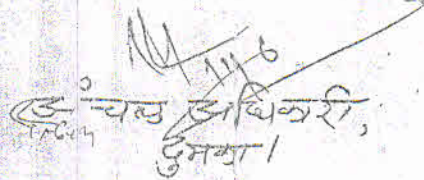 अंचल अधिकारी,
दुमका।